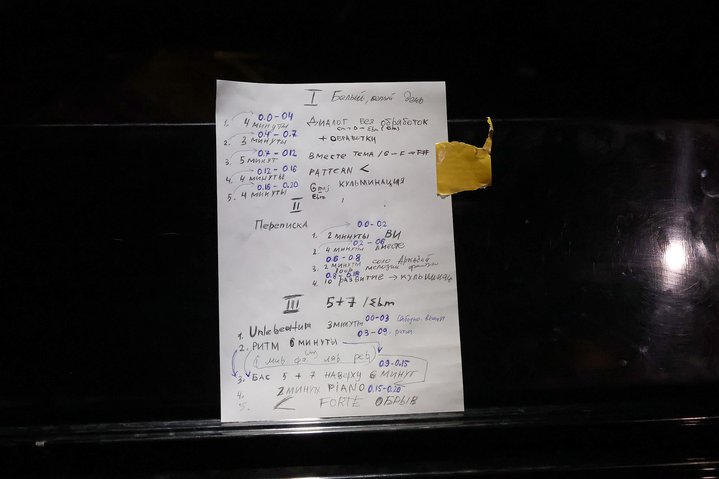 I Белый, белый день
0.0-04
1. 4 минуты Диалог без обработок
04-0.7
2. 3 минуты + обработки
0.7-012
3. 5 минут вместе тема / G-F→F#
0.12-016
4. 4 минуты PATTERN <
0.16-0.20
5. 4 минуты кульминация
Ebm
II
Переписка
0.0-02
1. 2 минуты ВИ
0.2-06
2. 4 минуты вместе
0.6-0.8
3. 2 минуты соло
4. 10 развитие → кульминац
III 5+7 / Ebm
00-03
1. 3 минуты
03-09. ритм
2. РИТМ 6 минуты
0.9-0.15
3. БАС 5+7 наверху 6 минут
4. 2 минуты PIANO 0.15-0.20
5. < FORTE ОБРЫВ